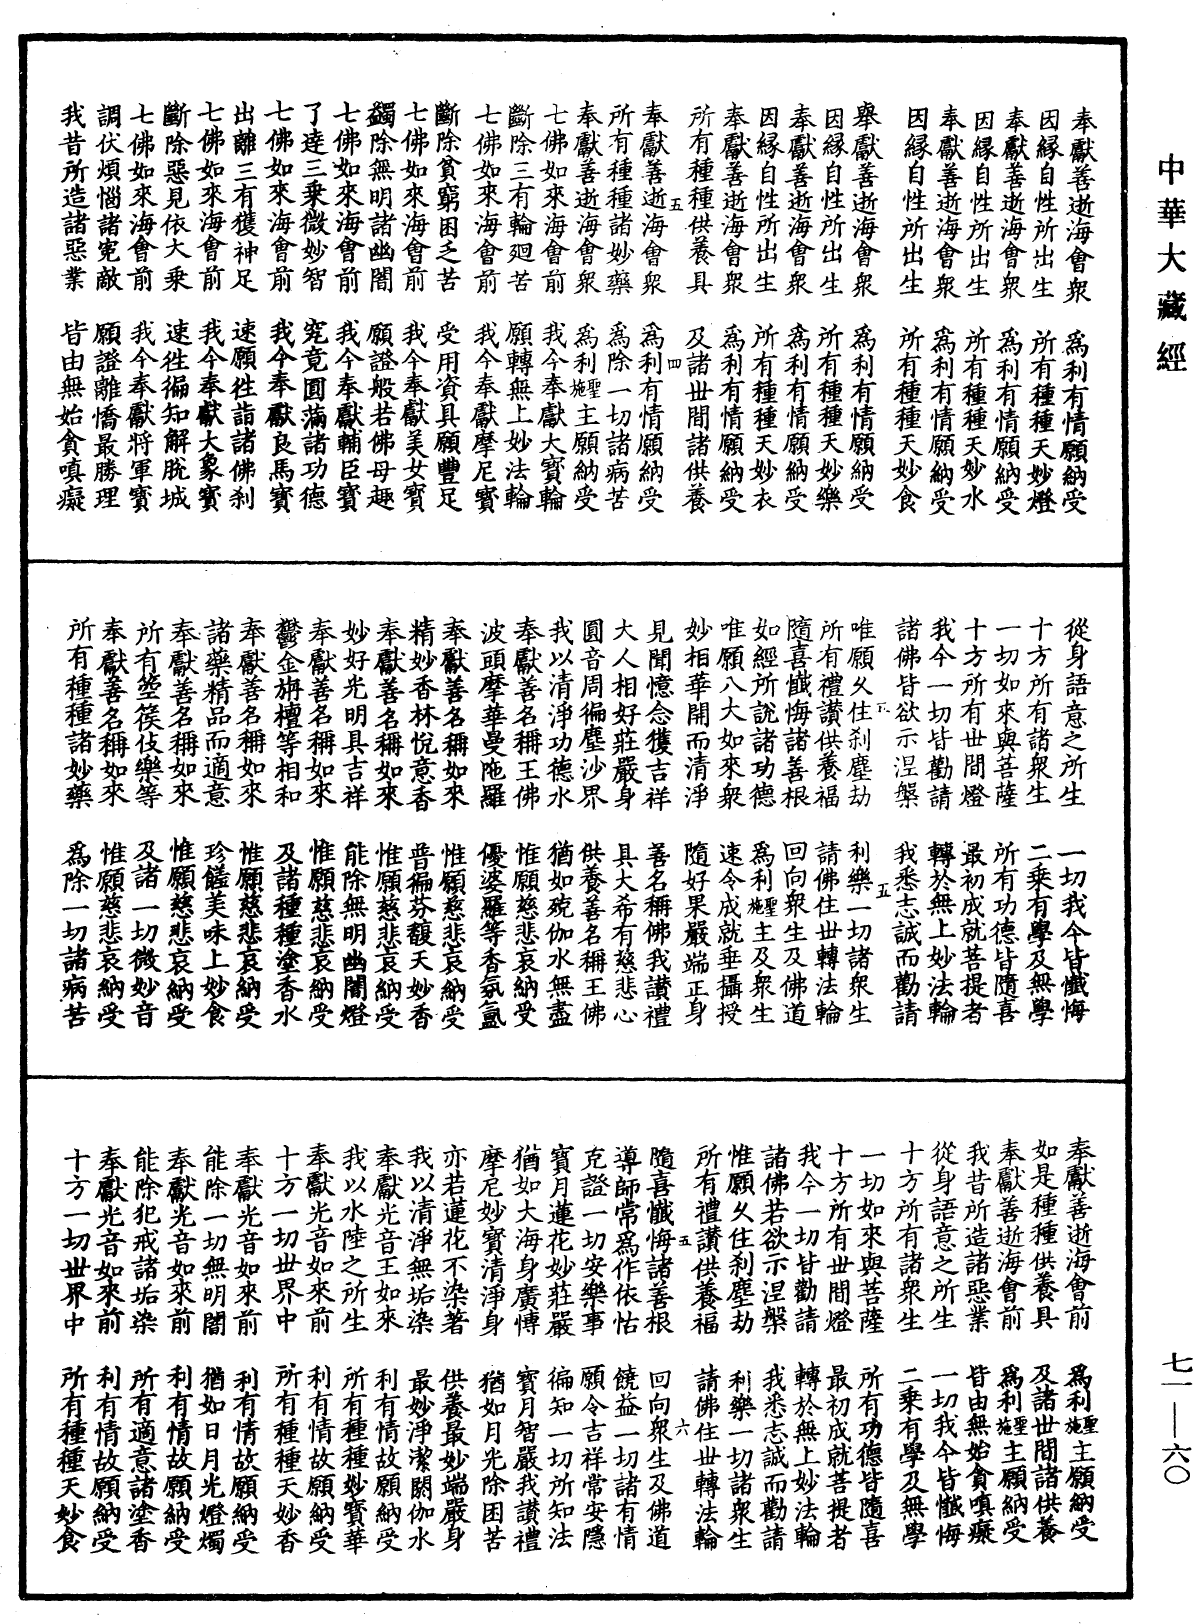 中華大藏經
奉獻善逝海會衆　為利有情願納受
因緣自性所出生　所有種種天妙燈
奉獻善逝海會衆　為利有情願納受
因緣自性所出生　所有種種天妙水
奉獻善逝海會衆　為利有情願納受
因緣自性所出生　所有種種天妙食
舉獻善逝海會衆　為利有情願納受
因緣自性所出生　所有種種天妙樂
奉獻善逝海會衆　為利有情願納受
因緣自性所出生　所有種種天妙衣
奉獻善逝海會衆　為利有情願納受
所有種種供養具　及諸世間諸供養
五　四
奉獻善逝海會衆　為利有情願納受
所有種種諸妙藥　為除一切諸病苦
奉獻善逝海會衆　為利聖施主願納受
七佛如來海會前　我今奉獻大寶輪
斷除三有輪迴苦　願轉無上妙法輪
七佛如來海會前　我今奉獻摩尼寶
斷除貧窮困乏苦　受用資具願豐足
七佛如來海會前　我今奉獻美女寶
蠲除無明諸幽闇　願證般若佛母趣
七佛如來海會前　我今奉獻輔臣寶
了達三乘微妙智　究竟圓滿諸功德
七佛如來海會前　我今奉獻良馬寶
出離三有獲神足　速願往詣諸佛刹
七佛如來海會前　我今奉獻大象寶
斷除惡見依大乘　速徃徧知解脫城
七佛如來海會前　我今奉獻將軍寶
調伏煩惱諸冤敵　願證離憍最勝理
我昔所造諸惡業　皆由無始貪嗔癡
從身語意之所生　一切我今皆懺悔
十方所有諸衆生　二乘有學及無學
一切如來與菩薩　所有功德皆隨喜
十方所有世間燈　最初成就菩提者
我今一切皆勸請　轉於無上妙法輪
諸佛皆欲示涅槃　我悉志誠而勸請
唯願久住刹塵劫　利樂一切諸衆生
五
所有禮讃供養福　請佛住世轉法輪
隨喜懺悔諸善根　回向衆生及佛道
如經所說諸功德　為利聖施主及衆生
唯願八大如來衆　速令成就垂攝授
妙相華開而清淨　隨好果嚴端正身
見聞憶念獲吉祥　善名稱佛我讃禮
大人相好莊嚴身　具大希有慈悲心
圓音周徧塵沙界　供養善名稱王佛
我以清淨功德水　猶如殑伽水無盡
奉獻善名稱王佛　惟願慈悲哀納受
波頭摩華曼陁羅　優婆羅等香氛氳
奉獻善名稱如來　惟願慈悲哀納受
精妙香林悅意香　普徧芬馥天妙香
奉獻善名稱如來　惟願慈悲哀納受
妙好光明具吉祥　能除無明幽闇燈
奉獻善名稱如來　惟願慈悲哀納受
鬱金旃檀等相和　及諸種種塗香水
奉獻善名稱如來　惟願慈悲哀納受
諸藥精品而適意　珍饈美味上妙食
奉獻善名稱如來　惟願慈悲哀納受
所有箜篌伎樂等　及諸一切微妙音
奉獻善名稱如來　惟願慈悲哀納受
所有種種諸妙藥　為除一切諸病苦
奉獻善逝海會前　為利聖施主願納受
如是種種供養具　及諸世間諸供養
奉獻善逝海會前　為利聖施主願納受
我昔所造諸惡業　皆由無始貪嗔癡
從身語意之所生　一切我今皆懺悔
十方所有諸衆生　二乘有學及無學
一切如來與菩薩　所有功德皆隨喜
十方所有世間燈　最初成就菩提者
我今一切皆勸請　轉於無上妙法輪
諸佛若欲示涅槃　我悉志誠而勸請
惟願久住刹塵劫　利樂一切諸衆生
所有禮讃供養福　請佛住世轉法輪
五　六
隨喜懺悔諸善根　回向衆生及佛道
導師常為作依怙　饒益一切諸有情
克證一切安樂事　願令吉祥常安隱
寶月蓮花妙莊嚴　徧知一切所知法
猶如大海身廣慱　寶月智嚴我讃禮
摩尼妙寶清淨身　猶如月光除困苦
亦若蓮花不染著　供養最妙端嚴身
我以清淨無垢染　最妙淨潔閼伽水
奉獻光音王如來　利有情故願納受
我以水陸之所生　所有種種妙寶華
奉獻光音如來前　利有情故願納受
十方一切世界中　所有種種天妙香
奉獻光音如來前　利有情故願納受
能除一切無明闇　猶如日月光燈燭
奉獻光音如來前　利有情故願納受
能除犯戒諸垢染　所有適意諸塗香
奉獻光音如來前　利有情故願納受
十方一切世界中　所有種種天妙食
七一—六〇